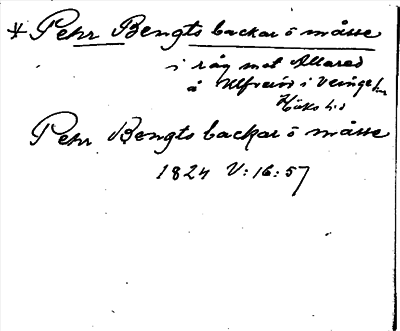 * Pehr Bengts backar ö måsse
i råg mot Allared
å Ulfsered i Veinge hn
Höks hd
Pehr Bengts backar ö måsse
1824 V: 16: 57